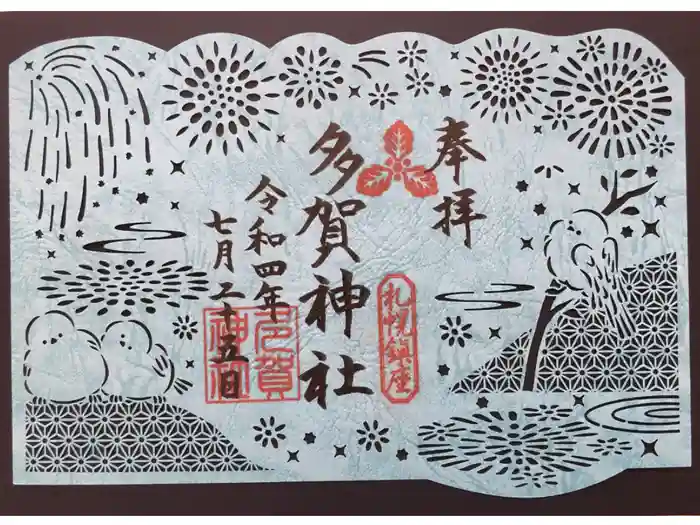 奉拝
札幌鎮座
多賀神社
令和四年
七月二十五日
多賀
神社